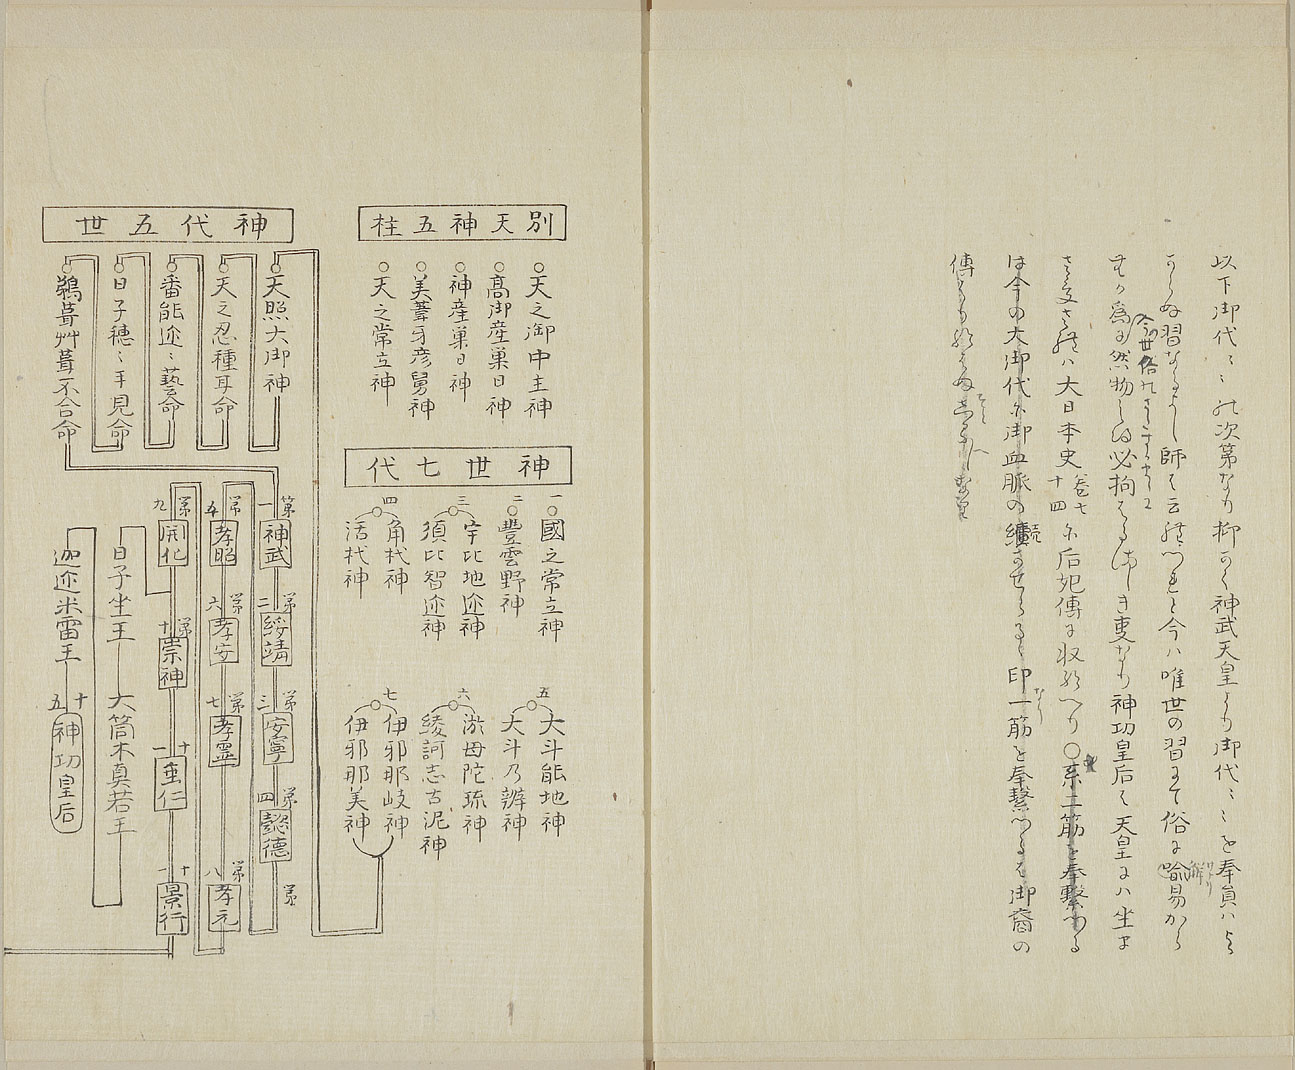 以下御代〻の次第なり抑かく神武天皇より御代〻〻を奉員ハよ
からぬ習なるよし師も云れつれと今ハ唯世の習にて俗に喩易から
むか為に然物しぬ必拘はるましき事なり神功皇后は天皇にハ坐ま
さゝれハ大日本史巻七十四に后妃傳に収給へり〇系二筋を奉繋つる
は今の大御代に御血脈の續させらるゝ印一筋を奉繋つるは御裔の
別天神五柱
天之御中主神
高御産巣日神
神産巣日神
美葦牙彦舅神
天之常立神
神世七代
一 國之常立神
二 豐雲野神
三 宇比地迩神
須比智迩神
四 角杙神
活杙神
五 大斗能地神
大斗乃辨神
六 淤母陀琉神
綾訶志古泥神
七 伊邪那岐神
伊邪那美神
神代五世
天照大御神
天之忍種耳命
番能迩〻藝命
日子穂〻手見命
鵜葺艸葺不合命
第一 神武
第二 綏靖
第三 安寧
第四 懿德
第五 孝昭
第六 孝安
第七 孝霊
第八 孝元
第九 開化
第十 崇神
十一 垂仁
景行
日子坐王
大筒木真若王
迦迩米雷王
十五 神功皇后